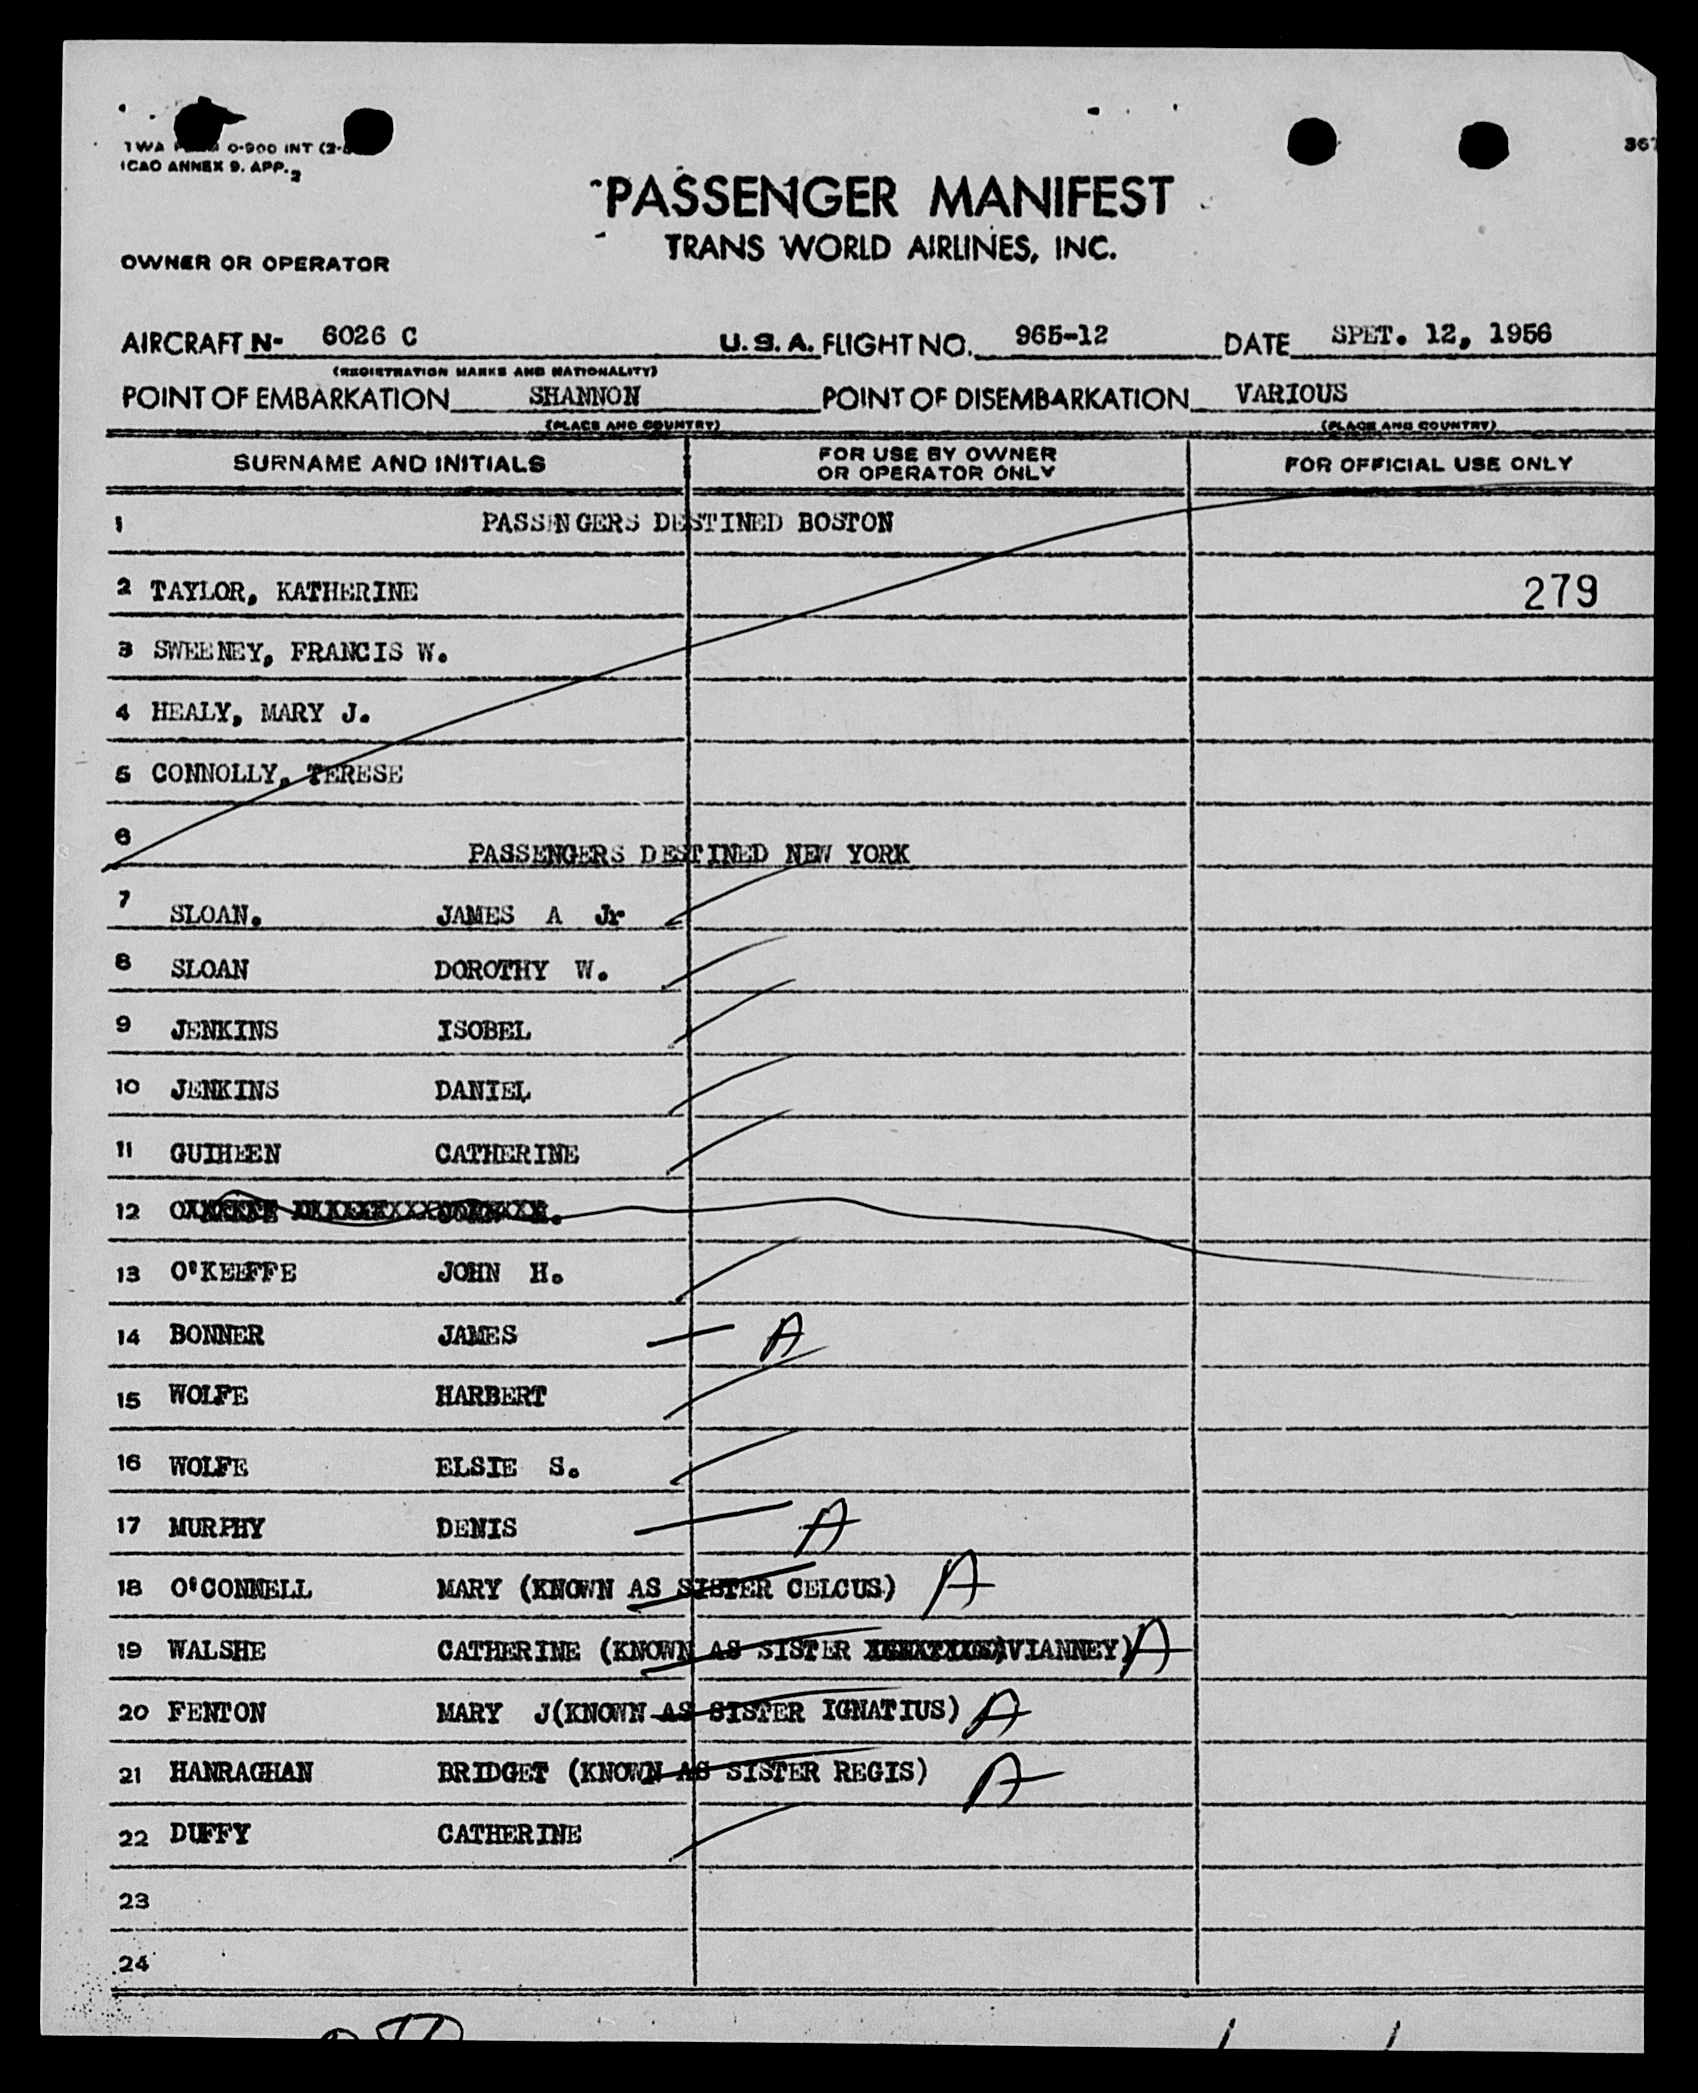 TWA 0-900 INT (2-
ICAO ANNEX 9. APP. 2
367
PASSENGER MANIFEST
TRANS WORLD AIRLINES, INC.
OWNER OR OPERATOR
AIRCRAFT N- 6026 C U. S. A. FLIGHT NO. 965-12 DATE SPET. 12, 1956
(REGISTRATION MARKS AND NATIONALITY)
POINT OF EMBARKATION SHANNON POINT OF DISEMBARKATION VARIOUS
(PLACE AND COUNTRY) (PLACE AND COUNTRY)
SURNAME AND INITIALS FOR USE BY OWNER OR OPERATOR ONLY FOR OFFICIAL USE ONLY
1 PASSENGERS DESTINED BOSTON
2 TAYLOR, KATHERINE 279
3 SWEENEY, FRANCIS W.
4 HEALY, MARY J.
5 CONNOLLY, TERESE
6 PASSENGERS DESTINED NEW YORK
7 SLOAN. JAMES A Jr
8 SLOAN DOROTHY W.
9 JENKINS ISOBEL
10 JENKINS DANIEL
11 GUIHEEN CATHERINE
12
13 O'KEEFFE JOHN H.
14 BONNER JAMES A
15 WOLFE HARBERT
16 WOLFE ELSIE S.
17 MURPHY DENIS A
18 O'CONNELL MARY (KNOWN AS SISTER CELCUS) A
19 WALSHE CATHERINE (KNOWN AS SISTER VIANNEY) A
20 FENTON MARY J(KNOWN AS SISTER IGNATIUS) A
21 HANRAGHAN BRIDGET (KNOWN AS SISTER REGIS) A
22 DUFFY CATHERINE
23
24